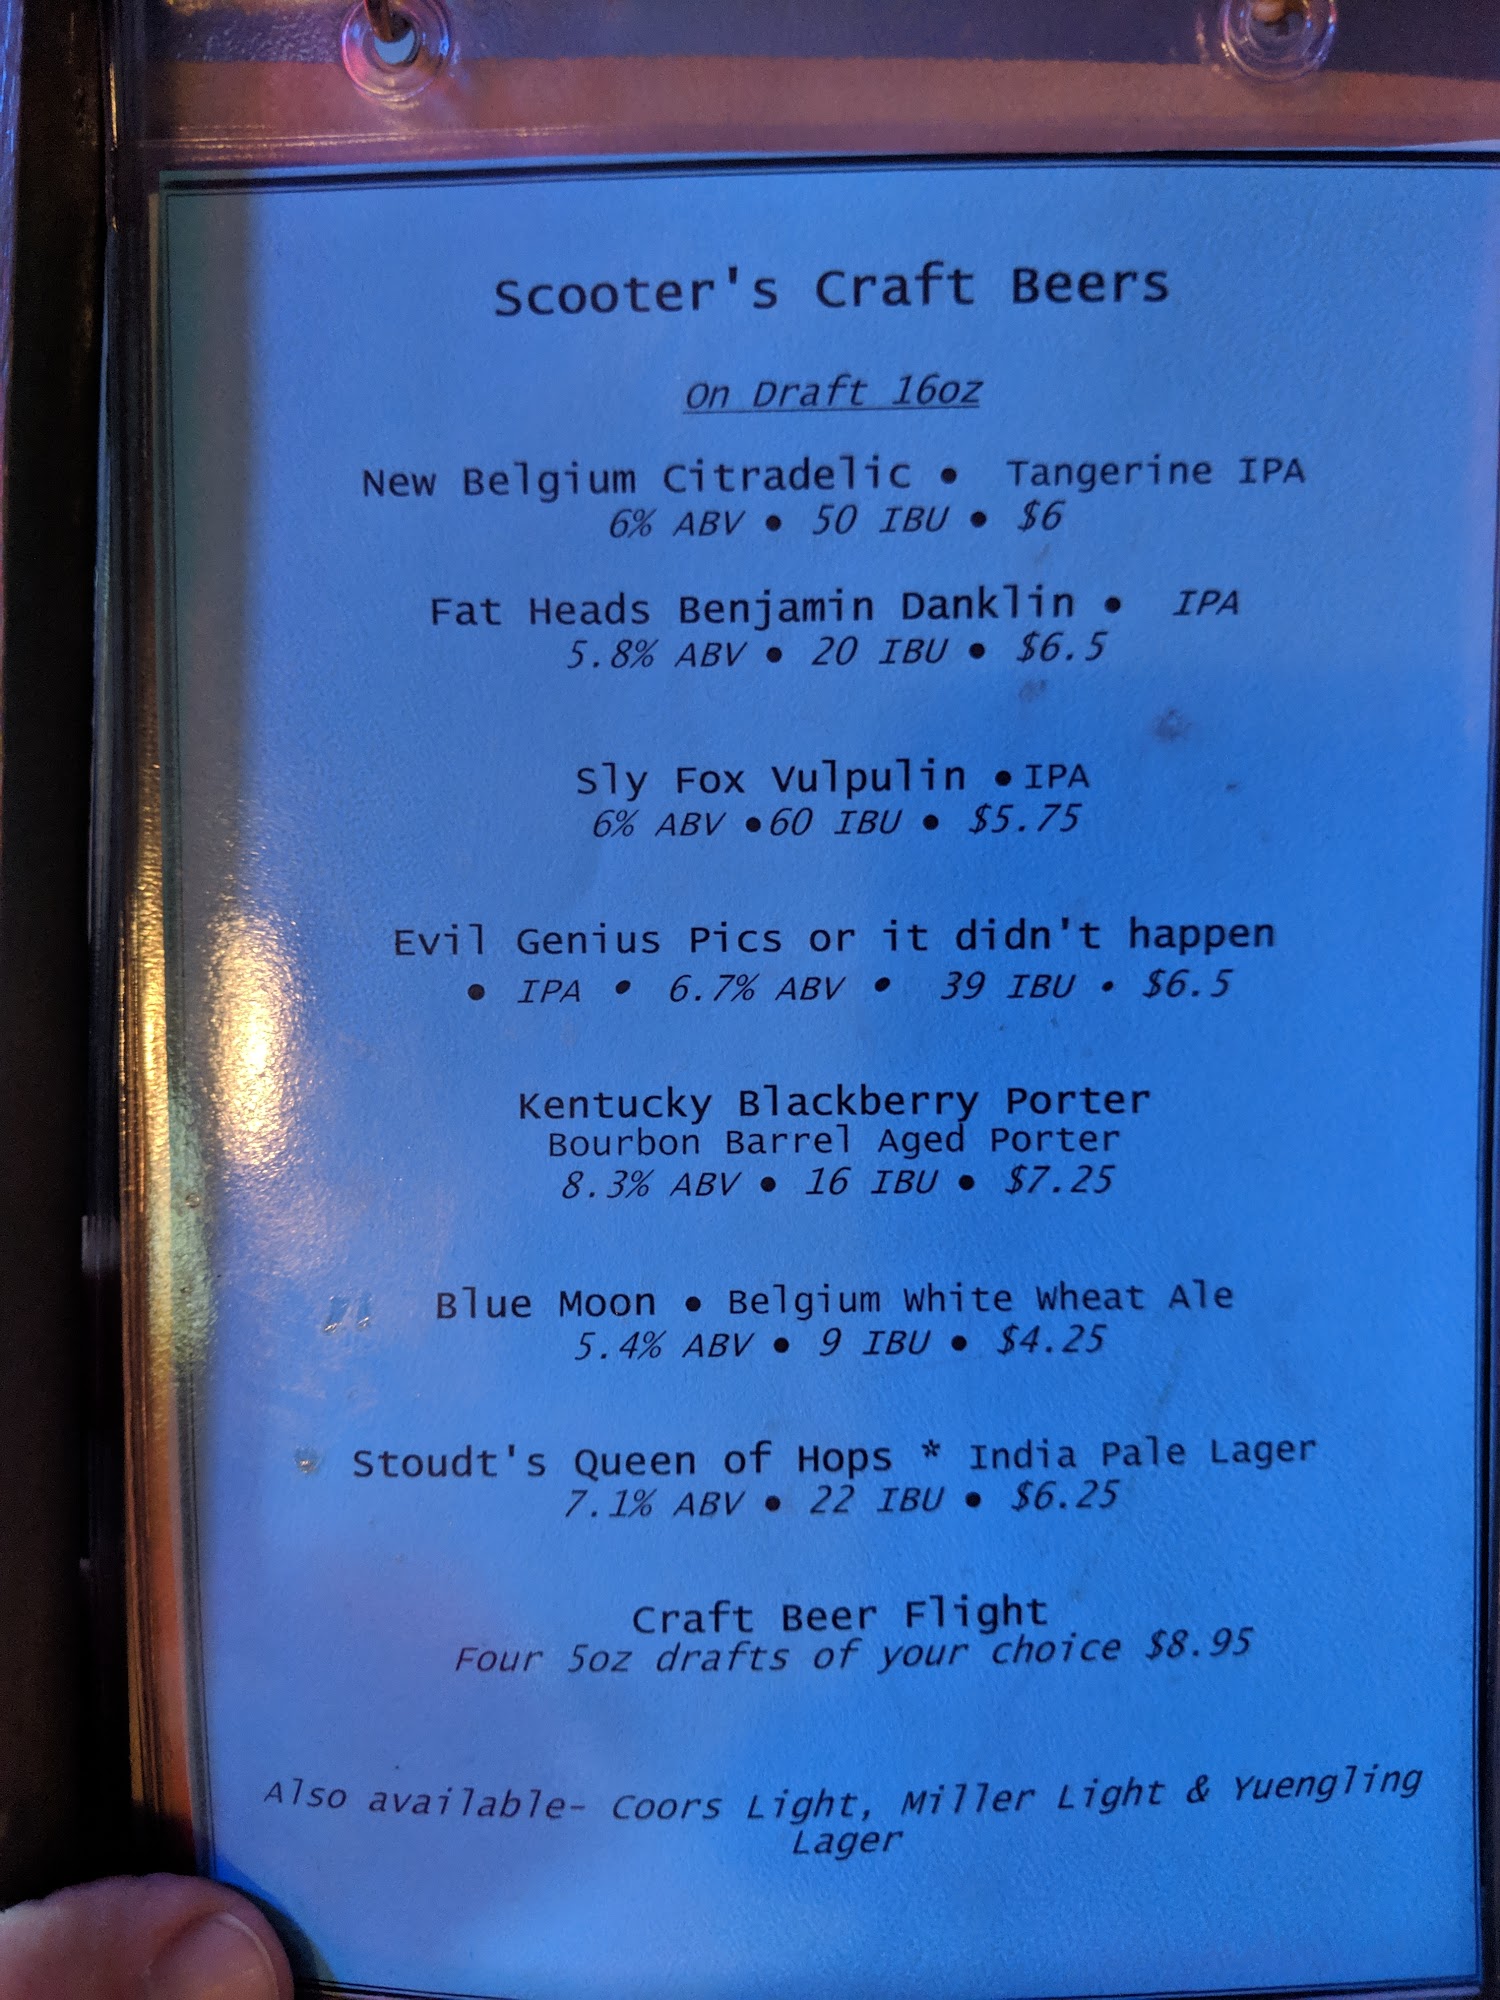 Scooter's Craft Beers
On Draft 16oz
New Belgium Citradelic • Tangerine IPA
6% ABV • 50 IBU • $6
Fat Heads Benjamin Danklin • IPA
5.8% ABV • 20 IBU • $6.5
Sly Fox Vulpulin •IPA
6% ABV •60 IBU • $5.75
Evil Genius Pics or it didn't happen
• IPA • 6.7% ABV • 39 IBU • $6.5
Kentucky Blackberry Porter
Bourbon Barrel Aged Porter
8.3% ABV • 16 IBU • $7.25
Blue Moon • Belgium White Wheat Ale
5.4% ABV • 9 IBU • $4.25
Stoudt's Queen of Hops * India Pale Lager
7.1% ABV • 22 IBU • $6.25
Craft Beer Flight
Four 5oz drafts of your choice $8.95
Also available- Coors Light, Miller Light & Yuengling
Lager